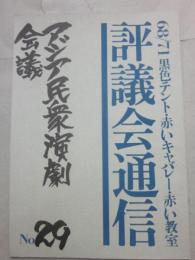 68/71黒色テント・赤いキャバレー・赤い教室
評議会通信
アジア民衆演劇
会議
No.29